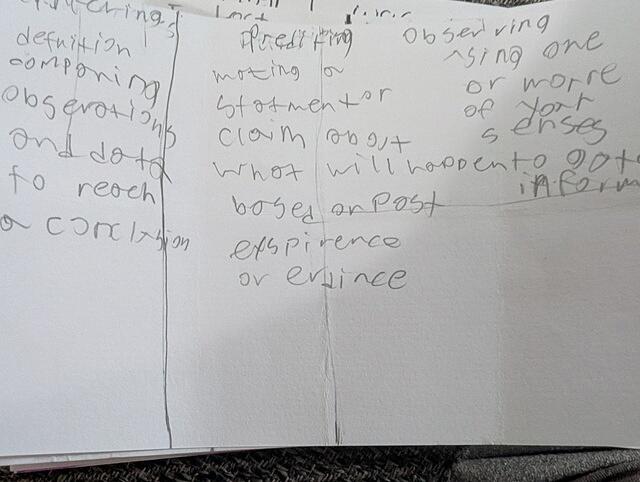 defnition
componing
observations
and data
to reach
a conclusion
prediting
moting a
statment or
claim about
what will happen to
based on Past
exspirence
or evince
observing
using one
or morre
of your
senses
to
inform